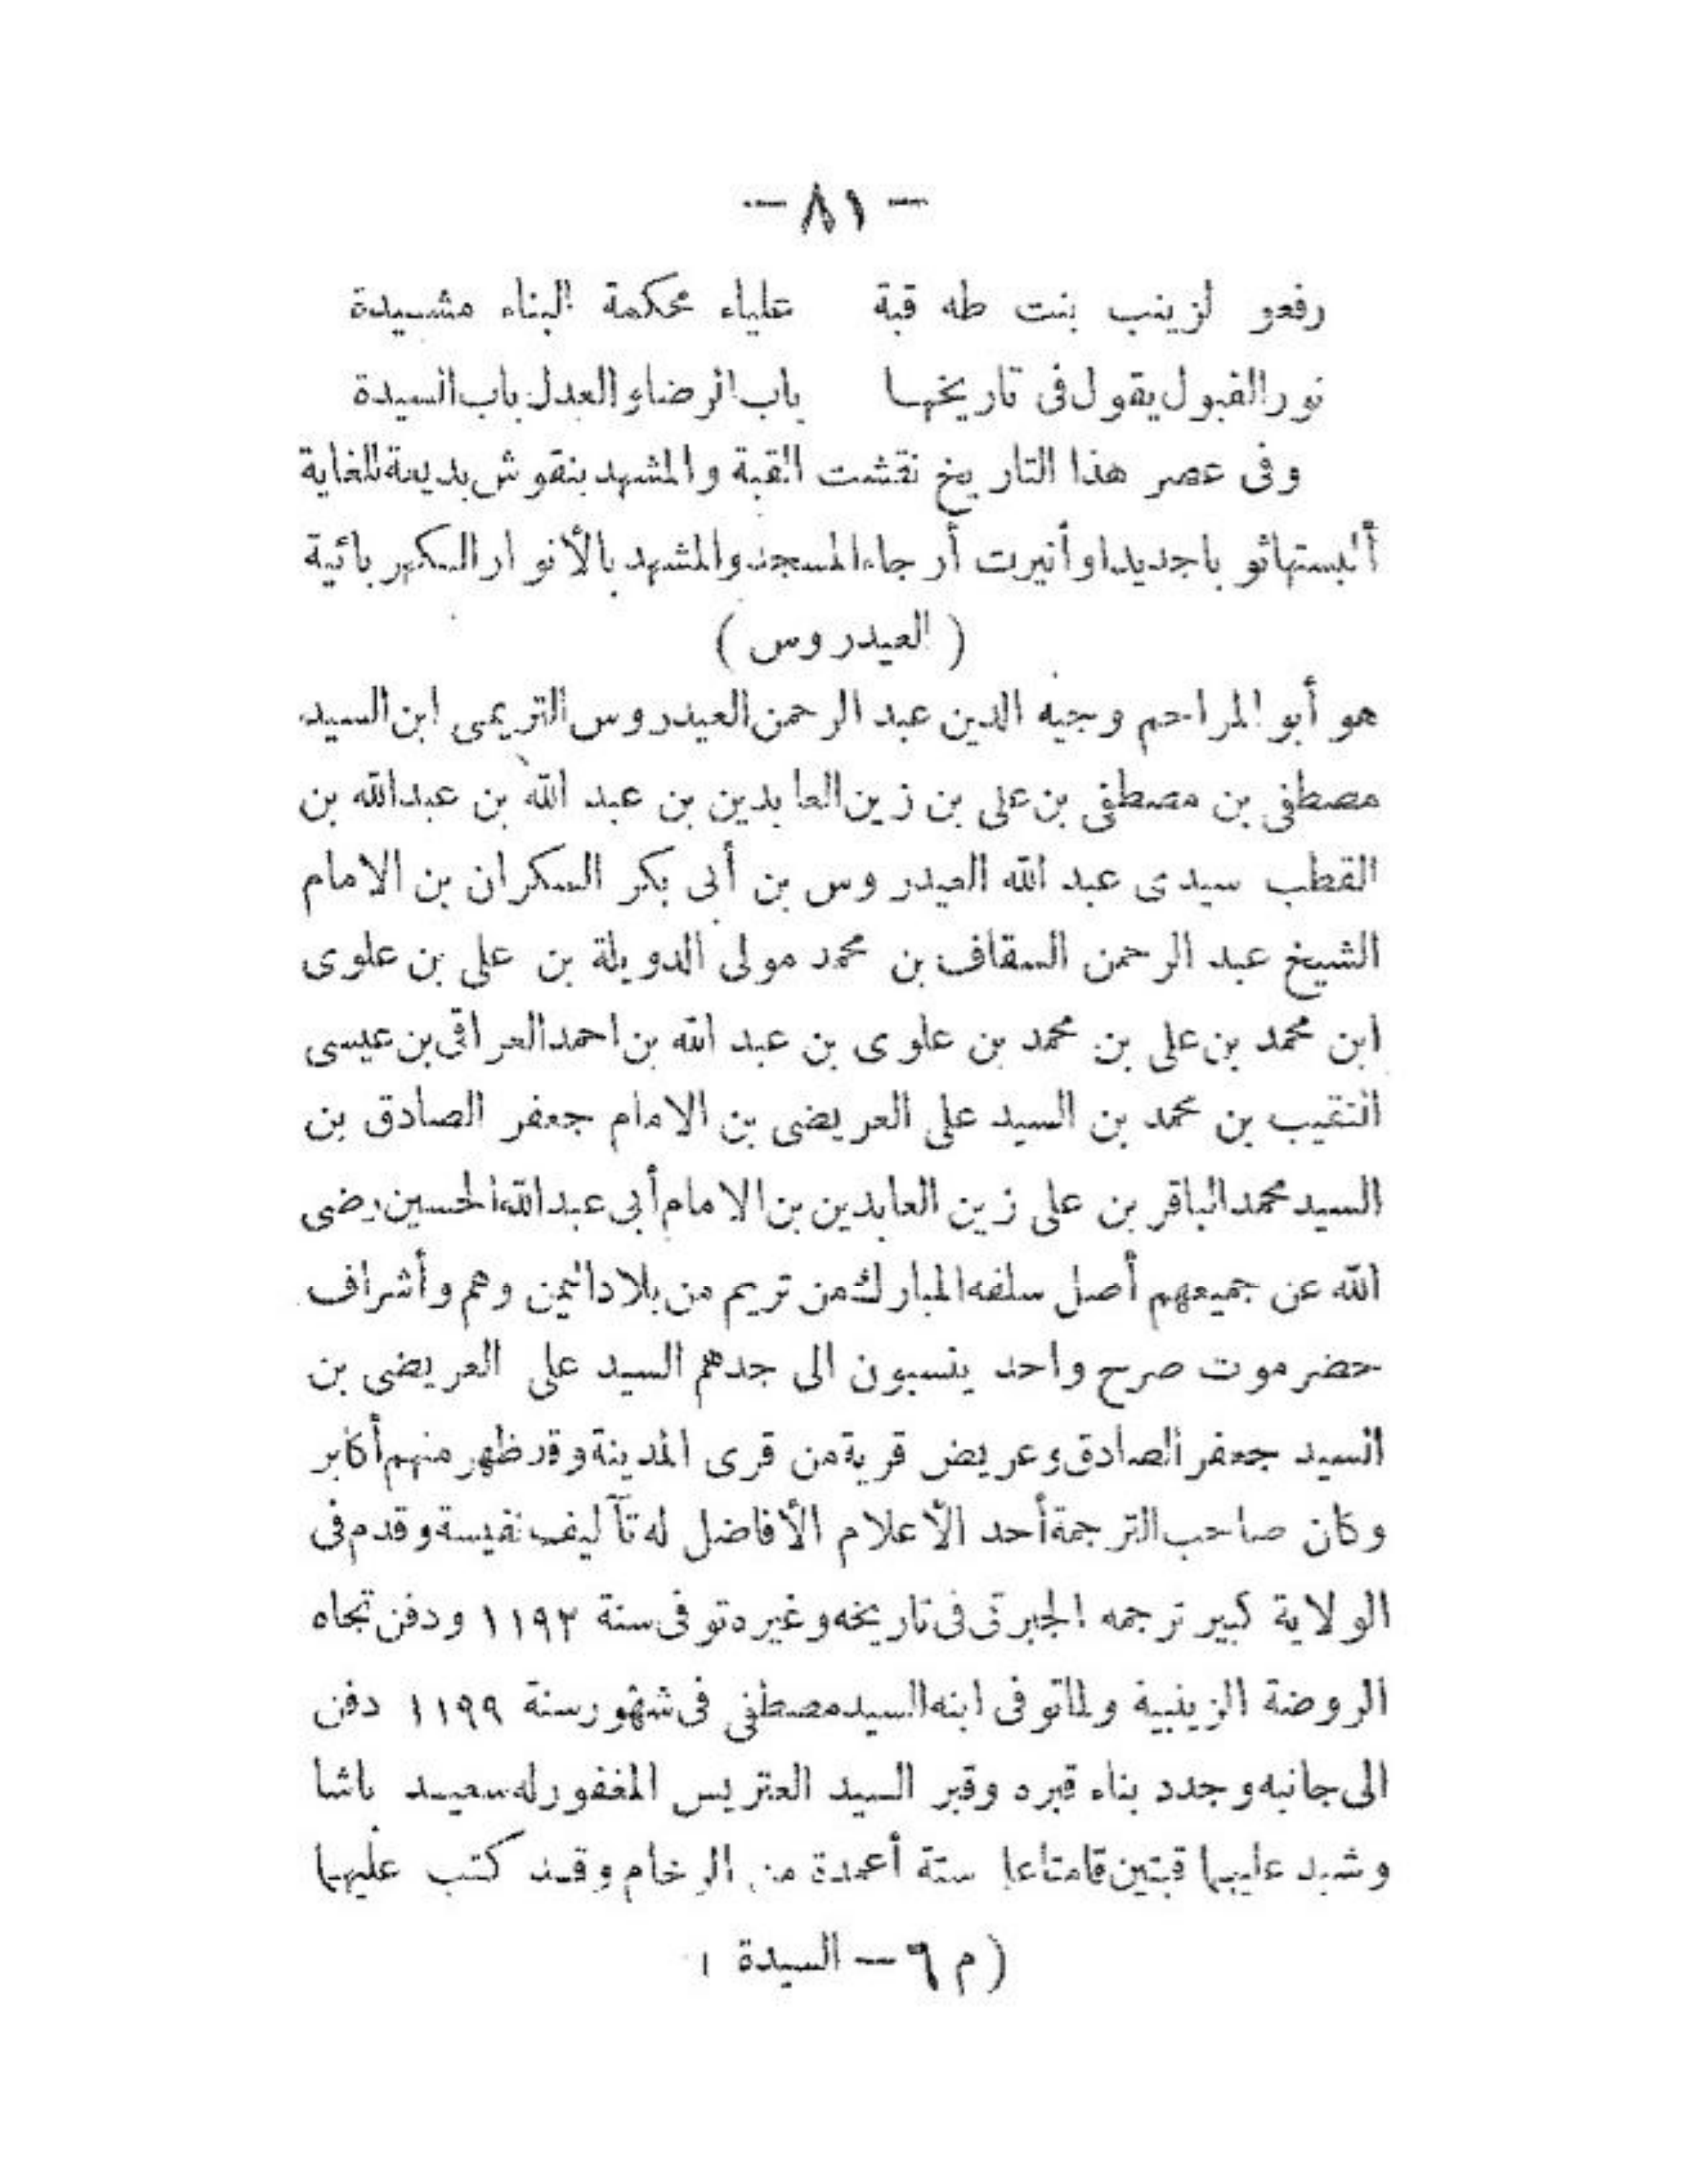 — ٨١ —
رفعو لزينب بنت طه قبة علياء محكمة البناء مشيدة
نور القبول يقول فى تاريخها باب الرضاء العدل باب السيدة
وفى عصر هذا التاريخ نقشت القبة والمشهد بنقوش بديعة للغاية
ألبستها ثوبا جديدا وأنيرت أرجاء المسجد والمشهد بالأنوار الكهربائية
( العيدروس )
هو أبو المراحم وجيه الدين عبد الرحمن العيدروس التريمى ابن السيد
مصطفى بن مصطفى بن على بن زين العابدين بن عبد الله بن عبد الله بن
القطب سيدى عبد الله العيدروس بن أبى بكر السكران بن الامام
الشيخ عبد الرحمن السقاف بن محمد مولى الدويلة بن على بن علوى
ابن محمد بن على بن محمد بن علوى بن عبد الله بن احمد العراقى بن عيسى
النقيب بن محمد بن السيد على العريضى بن الامام جعفر الصادق بن
السيد محمد الباقر بن على زين العابدين بن الامام أبى عبد الله الحسين رضى
الله عن جميعهم أصل سلفه المبارك من تريم من بلاد اليمن وهم وأشراف
حضرموت صرح واحد ينسبون الى جدهم السيد على العريضى بن
السيد جعفر الصادق وعريض قرية من قرى المدينة وقد ظهر منهم أكابر
وكان صاحب الترجمة أحد الأعلام الأفاضل له تآليف نفيسة وقدم فى
الولاية كبير ترجمه الجبرتى فى تاريخه وغيره توفى سنة ١١٩٢ ودفن تجاه
الروضة الزينبية ولما توفى ابنه السيد مصطفى فى شهور سنة ١١٩٩ دفن
الى جانبه وجدد بناء قبره وقبر السيد العتريس المغفور له سعيد باشا
وشيد عليهما قبتين قامتا على ستة أعمدة من الرخام وقد كتب عليهما
( م ٦ — السيدة )